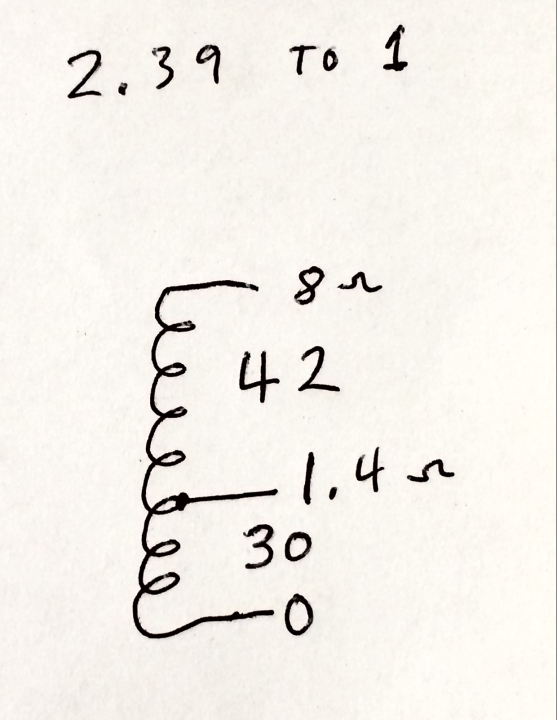 2.39 TO 1
8 Ω
42
1.4 Ω
30
0